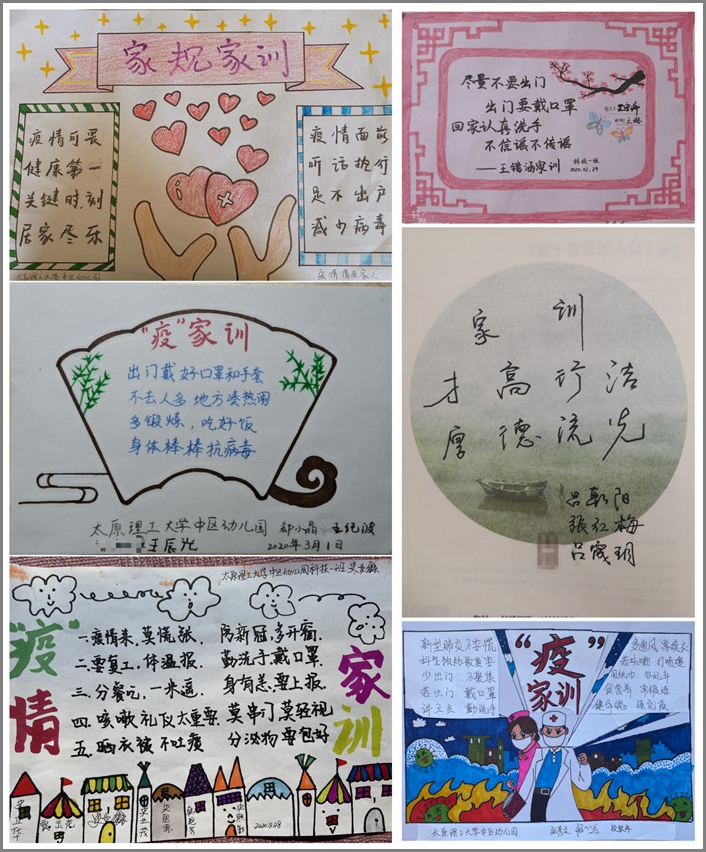 家规家训
疫情可畏
健康第一
关键时刻
居家尽乐
疫情面前
听话执行
足不出户
减少病毒
太原理工大学中区幼儿园
尽量不要出门
出门要戴口罩
回家认真洗手
不信谣不传谣
——王锴涵家训
科技一班
2020.02.29
"疫"家训
出门戴好口罩和手套
不去人多地方凑热闹
多锻炼，吃好饭
身体棒棒抗病毒
太原理工大学中区幼儿园 郝小晶
王辰光
2020年3月1日
家训
才高行洁
厚德流光
吕朝阳
张红梅
吕宬玥
太原理工大学中区幼儿园科技一班
"疫"情
家训
一.疫情来,莫慌张. 防新冠,多开窗.
二.要复工,体温报. 勤洗手,戴口罩
三.分餐记,一米遥. 身有恙,要上报.
四.咳嗽礼仪太重要 莫串门莫轻视
五.晒衣被不吐痰 分泌物要包好
"疫"
家训
新型肺炎不要慌
科学救治最重要
少出门 不聚集
若出门 戴口罩
讲卫生 勤洗手
多通风
若咳嗽 打喷嚏
用纸巾 勿乱弃
太原理工大学中区幼儿园